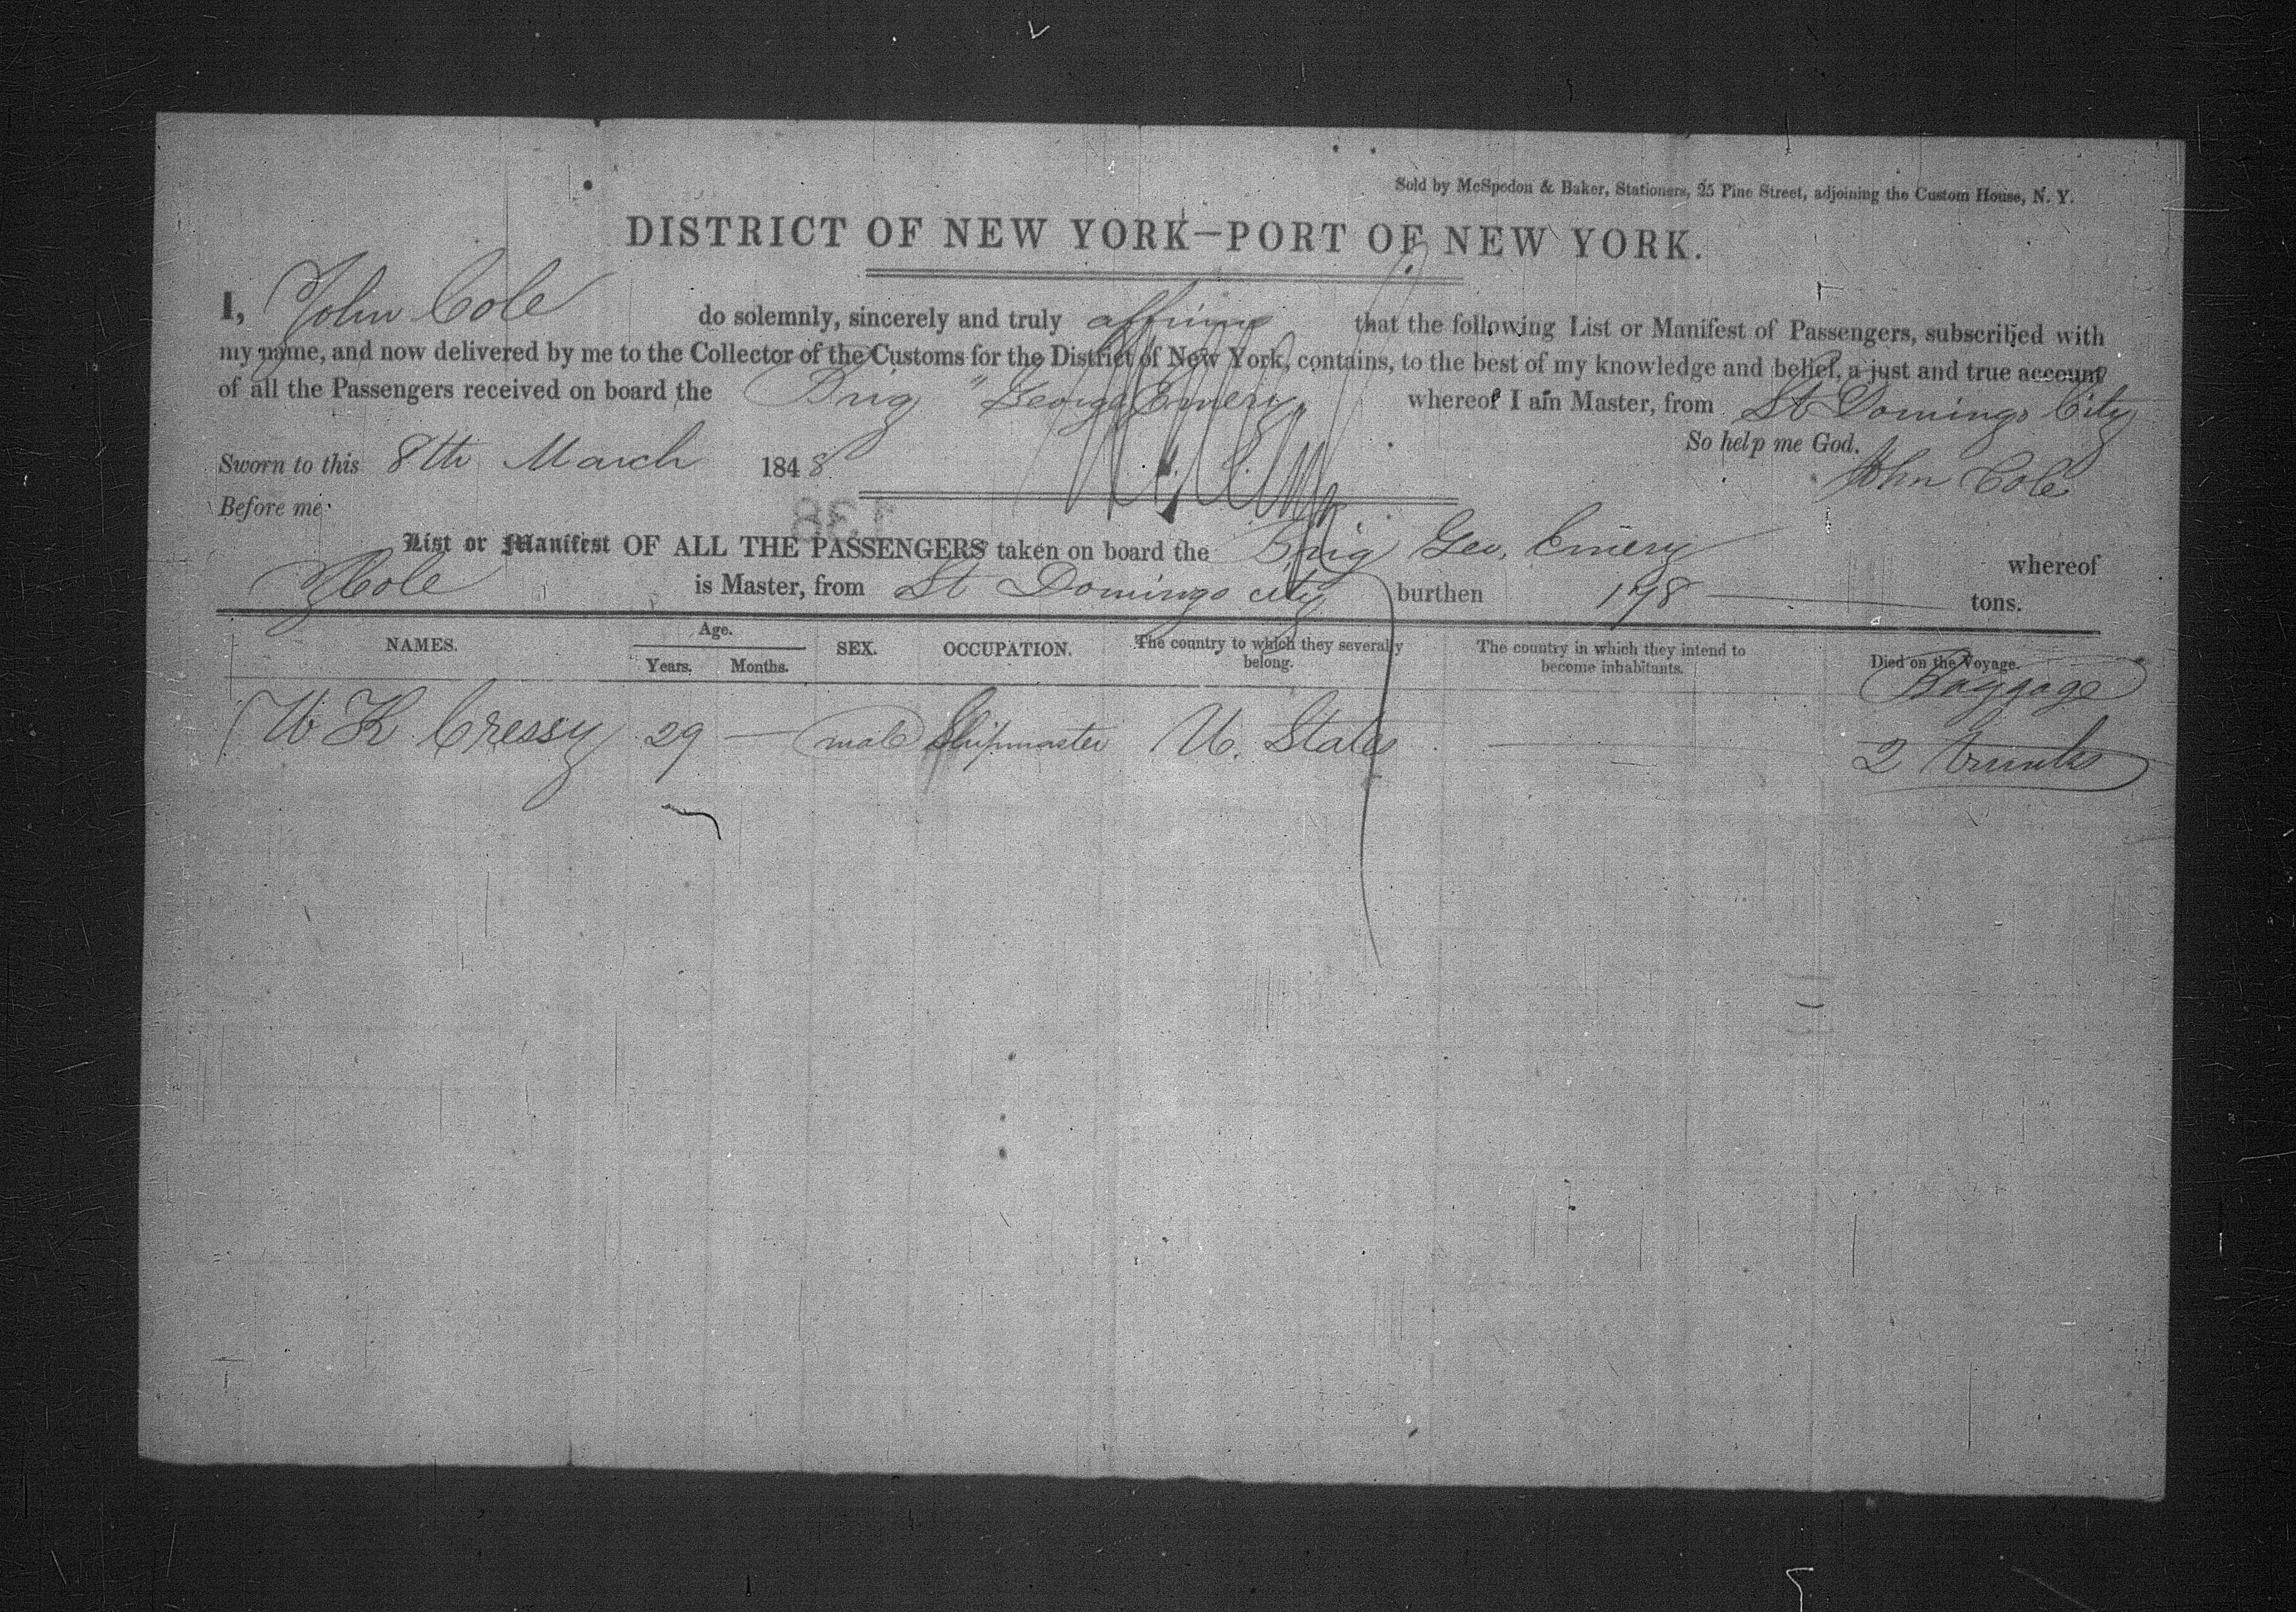 Sold by McSpedon & Baker, Stationers, 25 Pine Street, adjoining the Custom House, N. Y.
DISTRICT OF NEW YORK—PORT OF NEW YORK.
I, John Cole do solemnly, sincerely and truly affirm that the following List or Manifest of Passengers, subscribed with
my name, and now delivered by me to the Collector of the Customs for the District of New York, contains, to the best of my knowledge and belief, a just and true account
of all the Passengers received on board the Brig "George Emery" whereof I am Master, from St Domingo City
So help me God.
Sworn to this 8th March 1848 John Cole
Before me
List or Manifest OF ALL THE PASSENGERS taken on board the Brig Geo, Emery whereof
Cole is Master, from St Domingo city burthen 198 tons.
NAMES. Age. Years. Months. SEX. OCCUPATION. The country to which they severally belong. The country in which they intend to become inhabitants. Died on the Voyage.
Baggage
W K Cressy 29 — male Shipmaster U. States — 2 trunks